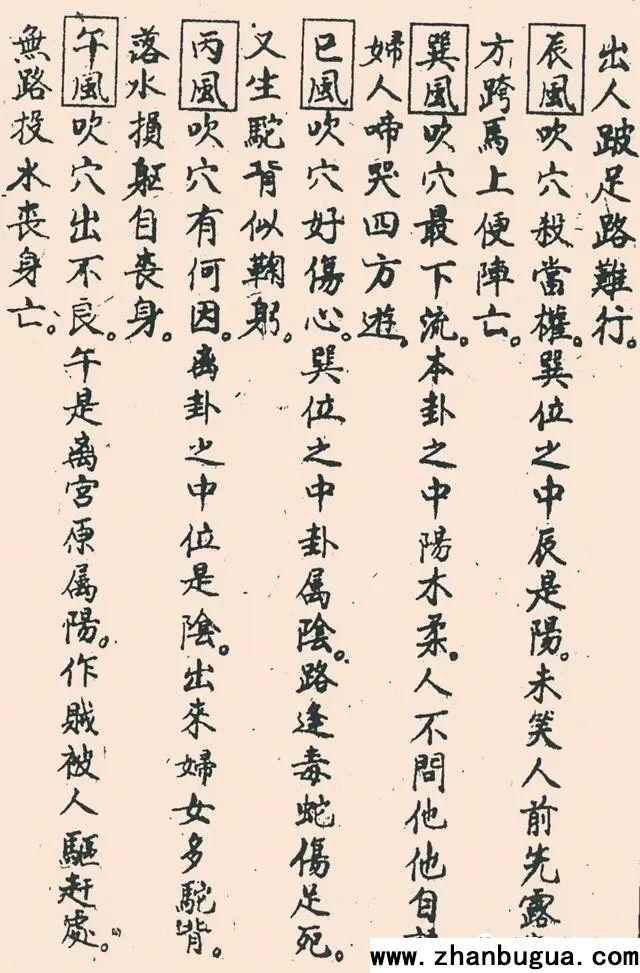 出人跛足路難行。
辰風吹穴殺當權。巽位之中辰是陽。未笑人前先露
方跨馬上便陣亡。
巽風吹穴最下流。本卦之中陽木柔。人不問他他自
婦人啼哭四方遊。
巳風吹穴好傷心。巽位之中卦屬陰。路逢毒蛇傷足死。
又生駝背似鞠躬。
丙風吹穴有何因。离卦之中位是陰。出來婦女多駝背。
落水損躯自丧身。
午風吹穴出不良。午是离宮原属陽。作賊被人驅赶處。
無路投水丧身亡。
www.zhanbugua.com